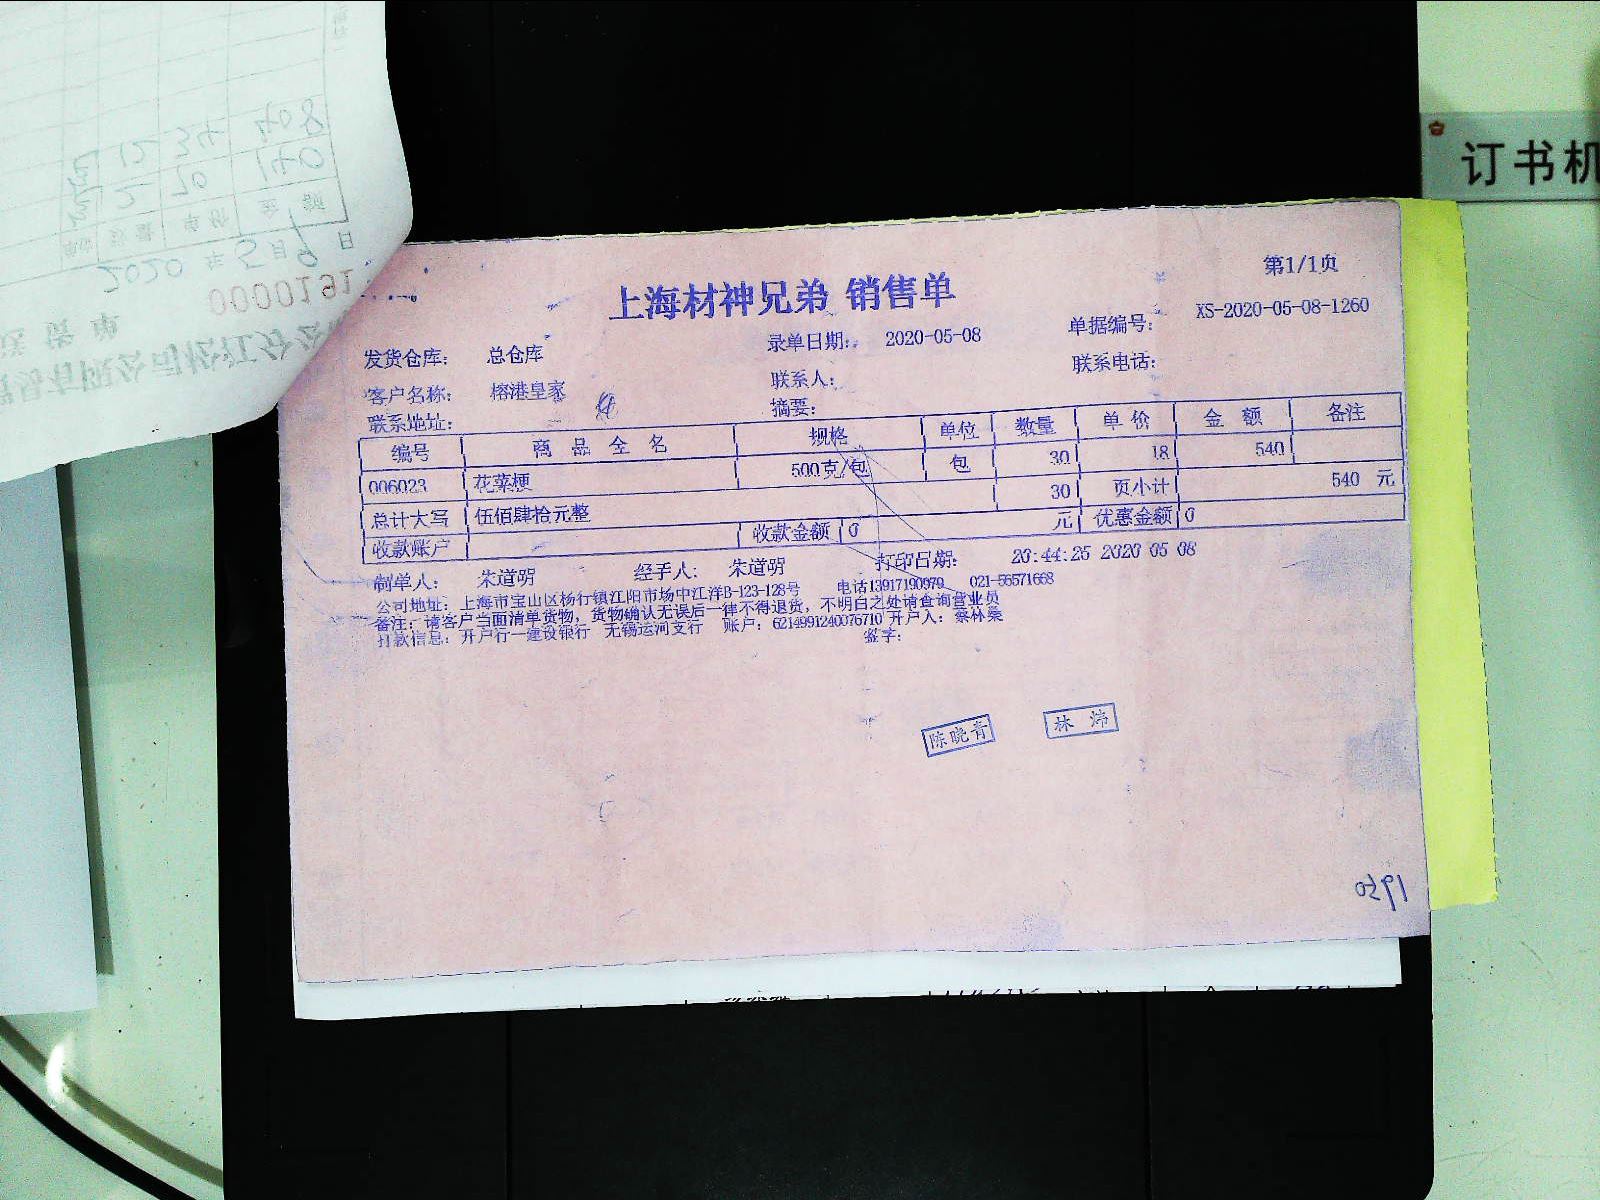 订书机
第1/1页
上海材神兄弟 销售单
发货仓库： 总仓库 录单日期： 2020-05-08 单据编号： XS-2020-05-08-1260
客户名称： 榕港皇家 联系人： 联系电话：
联系地址： 摘要：
编号 商品全名 规格 单位 数量 单价 金额 备注
006023 花菜梗 500克/包 包 30 18 540
30 页小计 540 元
总计大写 伍佰肆拾元整
收款账户 收款金额 0 元 优惠金额 0
制单人： 朱道明 经手人： 朱道明 打印日期： 20:44:25 2020 05 08
公司地址：上海市宝山区杨行镇江阳市场中江洋B-123-128号 电话13917190070 021-56571668
备注：请客户当面清单货物，货物确认无误后一律不得退货，不明白之处请查询营业员
打款信息：开户行一建设银行 无锡运河支行 账户：6214991240076710 开户人：蔡林桑
签字：
陈晓青 林炜
0000191
2020 年 5 月 9 日
数量 单价 金额
2 70 140
12 34 408